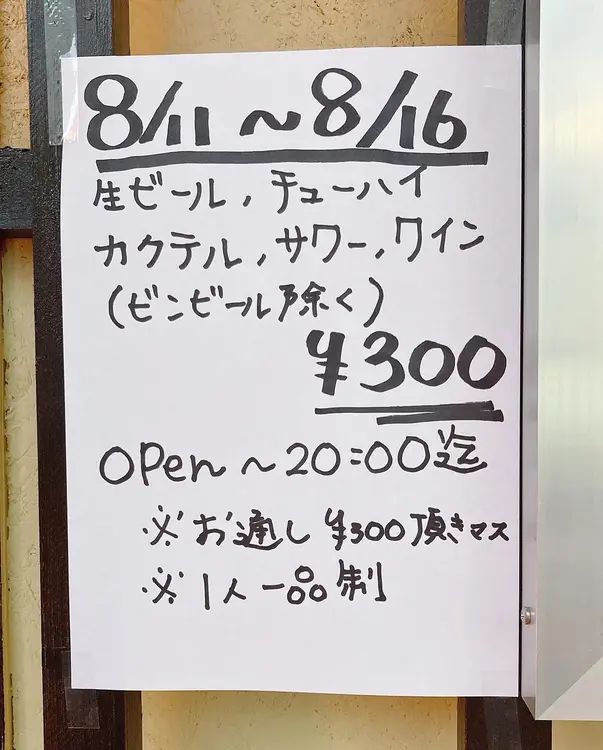 8/11～8/16
生ビール,チューハイ
カクテル,サワー,ワイン
(ビンビール除く)
¥300
OPen～20:00迄
※お通し¥300頂きマス
※1人一品制